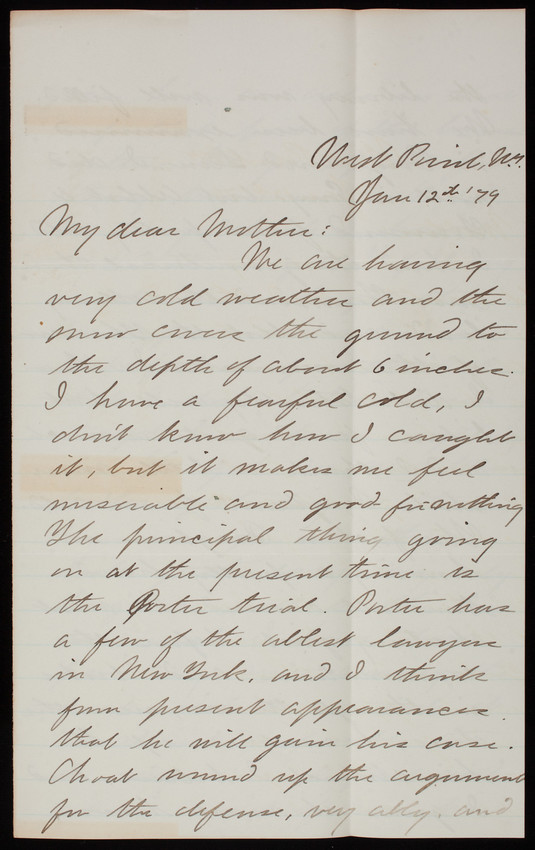 West Point, N.Y.
Jan 12th '79
My dear Mother:
We are having
very cold weather and the
snow covers the ground to
the depth of about 6 inches.
I have a fearful cold, I
don't know how I caught
it, but it makes me feel
miserable and good-for-nothing
The principal thing going
on at the present time is
the Porter trial. Porter has
a few of the ablest lawyers
in New York, and I think
from present appearances
that he will gain his case.
Choat wound up the argument
for the defense, very ably, and